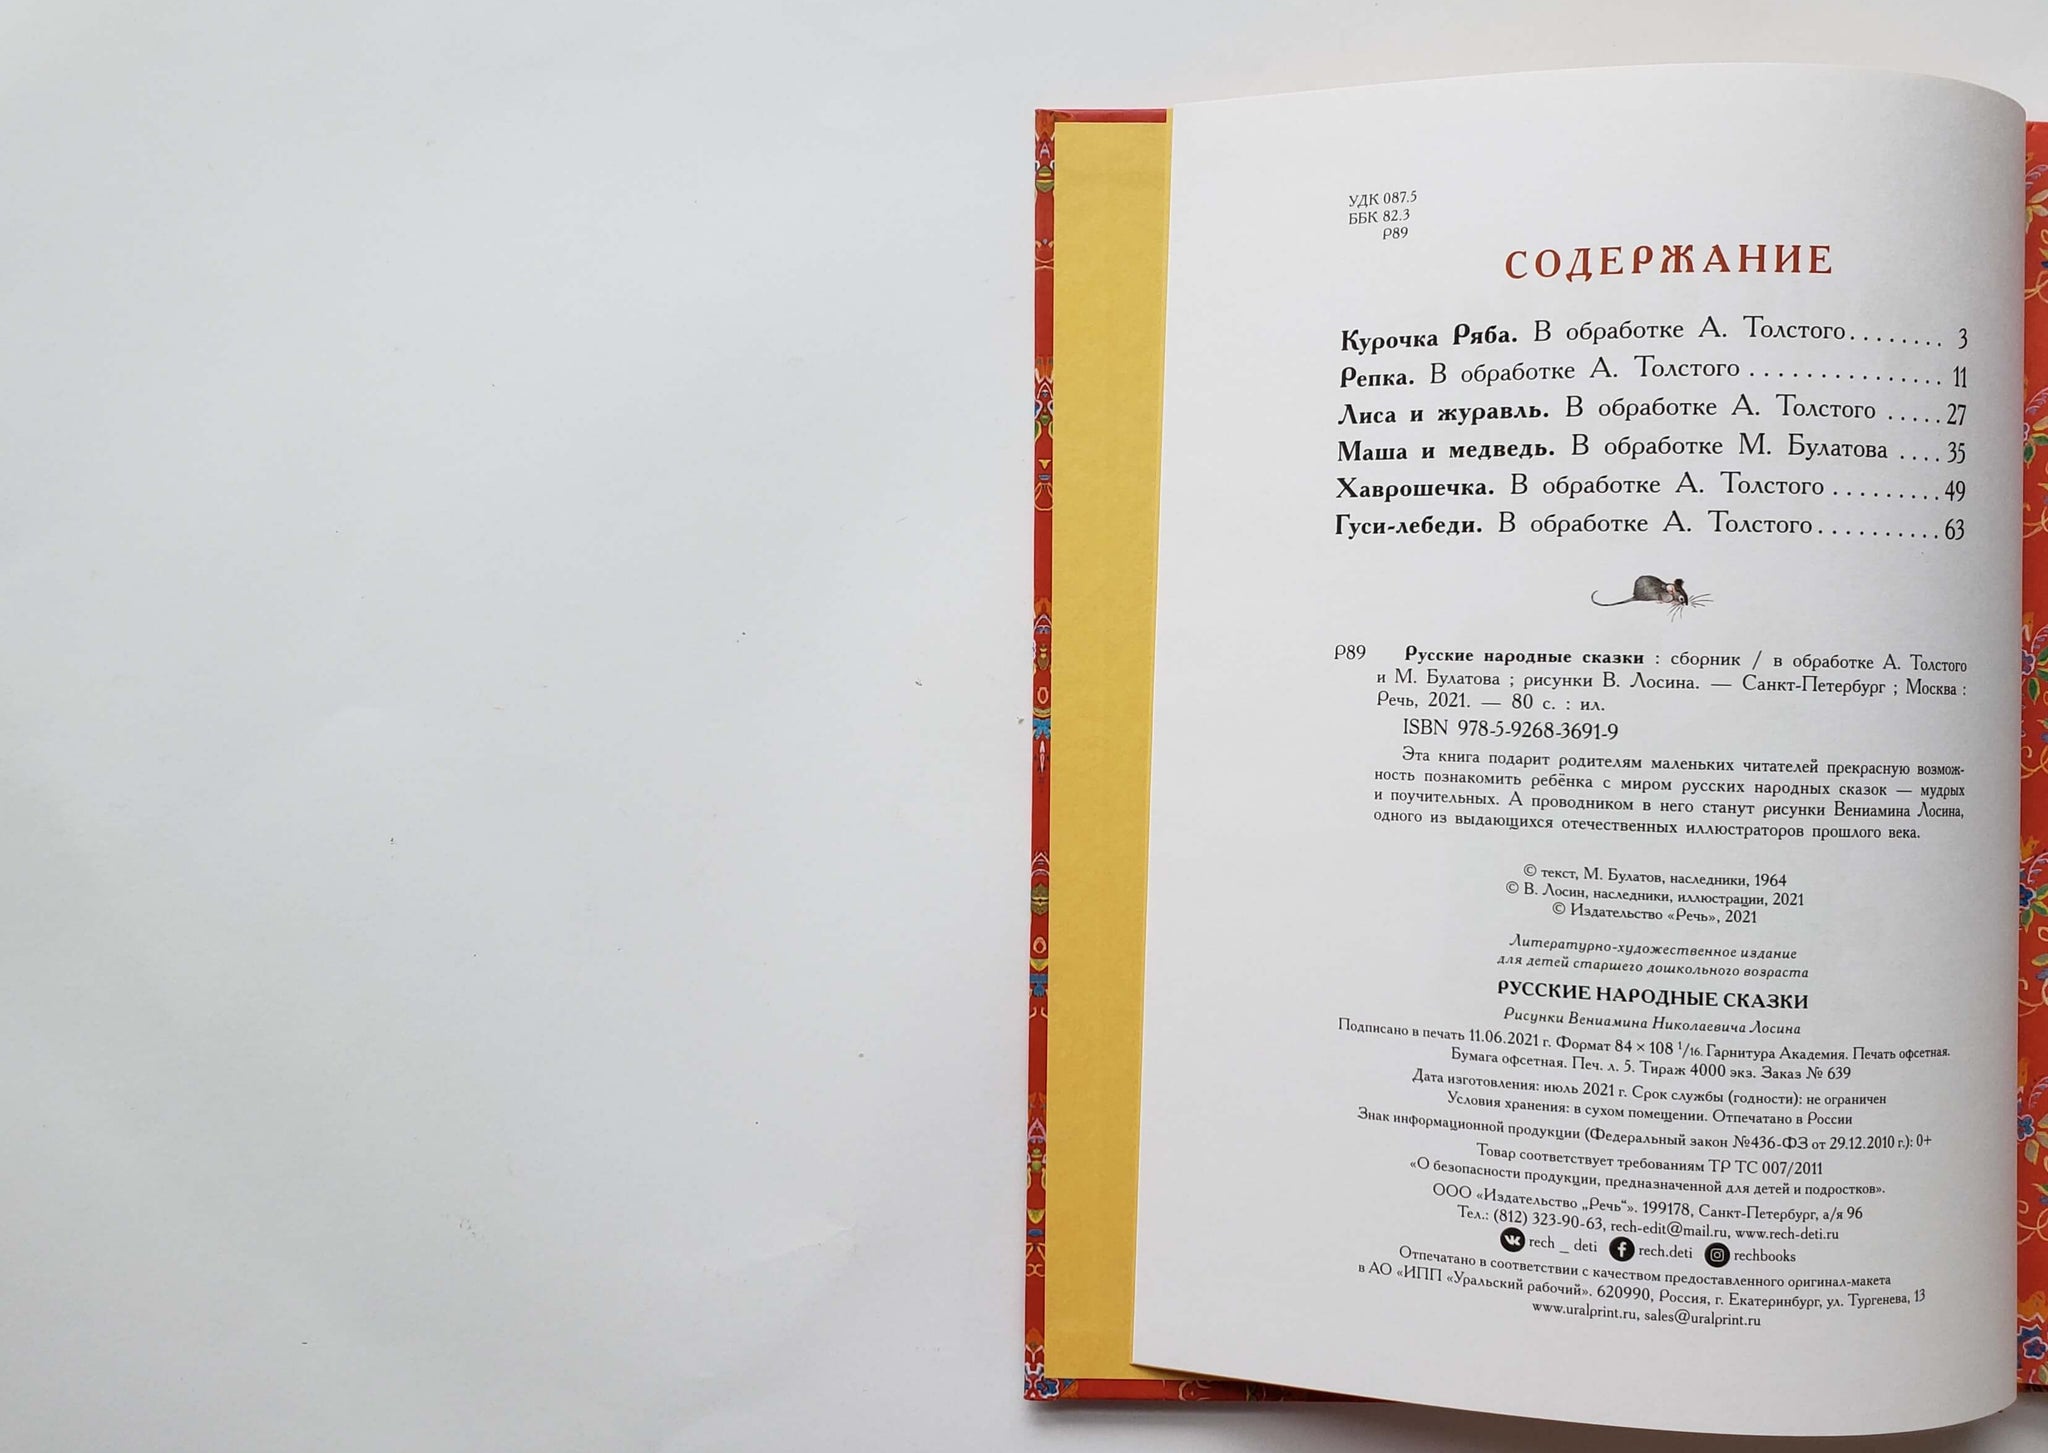 УДК 087.5
ББК 82.3
Р89
СОДЕРЖАНИЕ
Курочка Ряба. В обработке А. Толстого........ 3
Репка. В обработке А. Толстого ............... 11
Лиса и журавль. В обработке А. Толстого .....27
Маша и медведь. В обработке М. Булатова ....35
Хаврошечка. В обработке А. Толстого .........49
Гуси-лебеди. В обработке А. Толстого..........63
Р89 Русские народные сказки : сборник / в обработке А. Толстого
и М. Булатова ; рисунки В. Лосина. — Санкт-Петербург ; Москва :
Речь, 2021. — 80 с. : ил.
ISBN 978-5-9268-3691-9
Эта книга подарит родителям маленьких читателей прекрасную возмож-
ность познакомить ребёнка с миром русских народных сказок — мудрых
и поучительных. А проводником в него станут рисунки Вениамина Лосина,
одного из выдающихся отечественных иллюстраторов прошлого века.
© текст, М. Булатов, наследники, 1964
© В. Лосин, наследники, иллюстрации, 2021
© Издательство «Речь», 2021
Литературно-художественное издание
для детей старшего дошкольного возраста
РУССКИЕ НАРОДНЫЕ СКАЗКИ
Рисунки Вениамина Николаевича Лосина
Подписано в печать 11.06.2021 г. Формат 84 × 108 1/16. Гарнитура Академия. Печать офсетная.
Бумага офсетная. Печ. л. 5. Тираж 4000 экз. Заказ № 639
Дата изготовления: июль 2021 г. Срок службы (годности): не ограничен
Условия хранения: в сухом помещении. Отпечатано в России
Знак информационной продукции (Федеральный закон №436-ФЗ от 29.12.2010 г.): 0+
Товар соответствует требованиям ТР ТС 007/2011
«О безопасности продукции, предназначенной для детей и подростков».
ООО «Издательство „Речь“». 199178, Санкт-Петербург, а/я 96
Тел.: (812) 323-90-63, rech-edit@mail.ru, www.rech-deti.ru
rech _ deti rech.deti rechbooks
Отпечатано в соответствии с качеством предоставленного оригинал-макета
в АО «ИПП «Уральский рабочий». 620990, Россия, г. Екатеринбург, ул. Тургенева, 13
www.uralprint.ru, sales@uralprint.ru